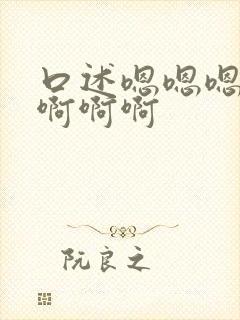 口述嗯嗯嗯
啊啊啊
阮良之